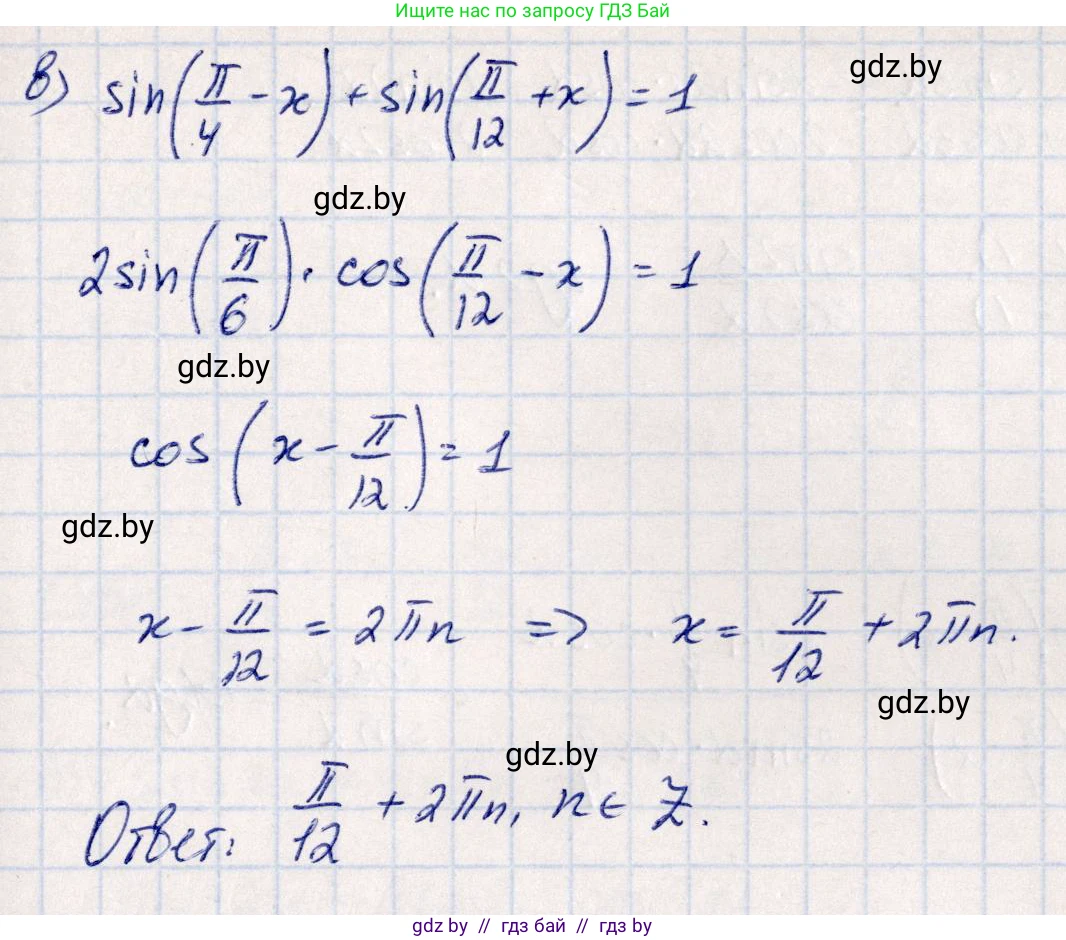 Ищите нас по запросу ГДЗ Бай
в) sin(π/4 - x) + sin(π/12 + x) = 1
gdz.by
gdz.by
2sin(π/6) · cos(π/12 - x) = 1
gdz.by
cos(x - π/12) = 1
gdz.by
x - π/12 = 2πn => x = π/12 + 2πn.
gdz.by
gdz.by
Ответ: π/12 + 2πn, n ∈ Z.
gdz by // гдз бай // гдз by